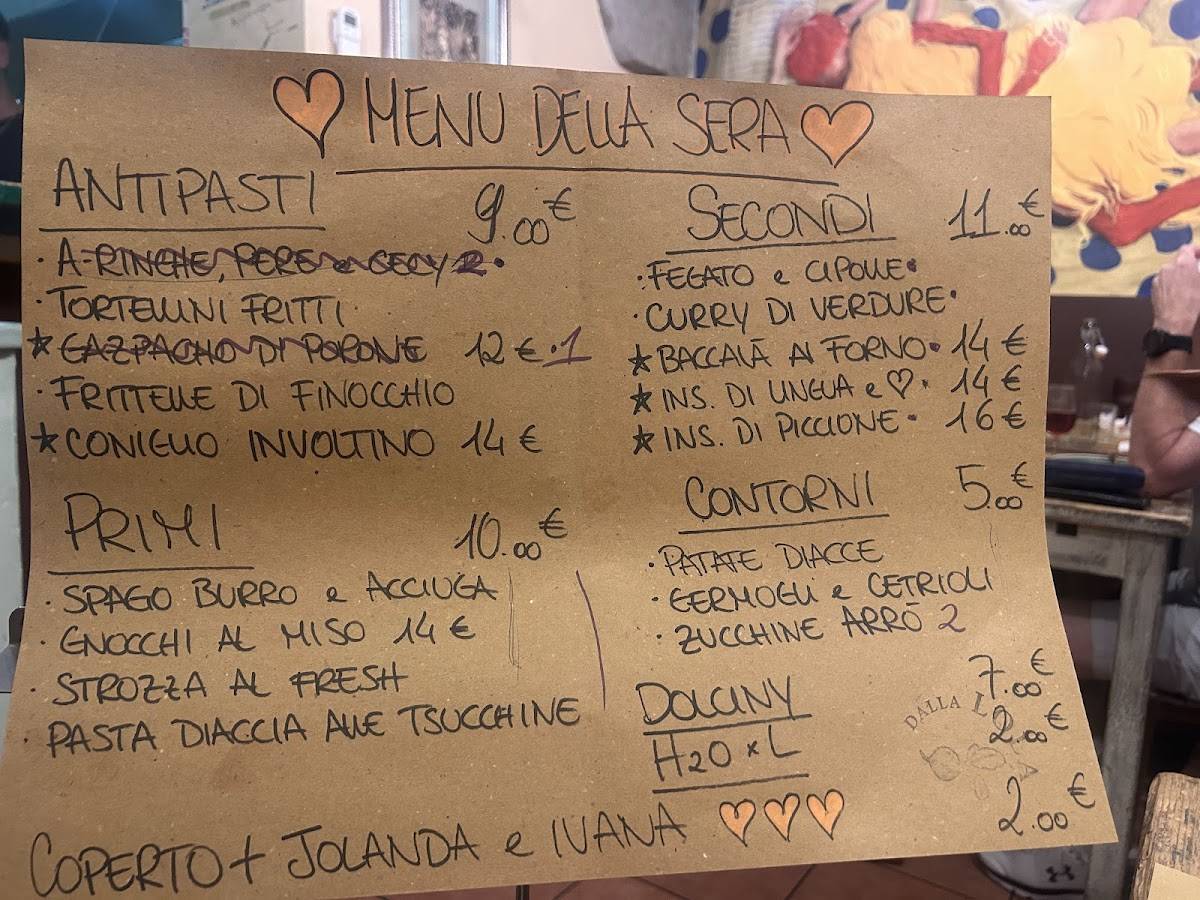 MENU DELLA SERA
ANTIPASTI 9.00€
· A-RINGHE, PERE e CECY 2·
· TORTELLINI FRITTI
★ GAZPACHO DI PORONE 12 €·1
· FRITTELLE DI FINOCCHIO
★ CONIGLIO INVOLTINO 14 €
PRIMI 10.00€
· SPAGO BURRO e ACCIUGA
· GNOCCHI AL MISO 14 €
· STROZZA AL FRESH
· PASTA DIACCIA ALLE TSUCCHINE
SECONDI 11.00€
· FEGATO e CIPOLLE·
· CURRY DI VERDURE·
★ BACCALÀ AL FORNO· 14 €
★ INS. DI LINGUA e ♡· 14 €
★ INS. DI PICCIONE· 16 €
CONTORNI 5.00€
· PATATE DIACCE
· GERMOGLI e CETRIOLI
· ZUCCHINE ARRÒ 2
DOLCINY 7.00€
H2O x L 2.00€
DALLA
COPERTO + JOLANDA e IVANA ♡♡♡ 2.00€